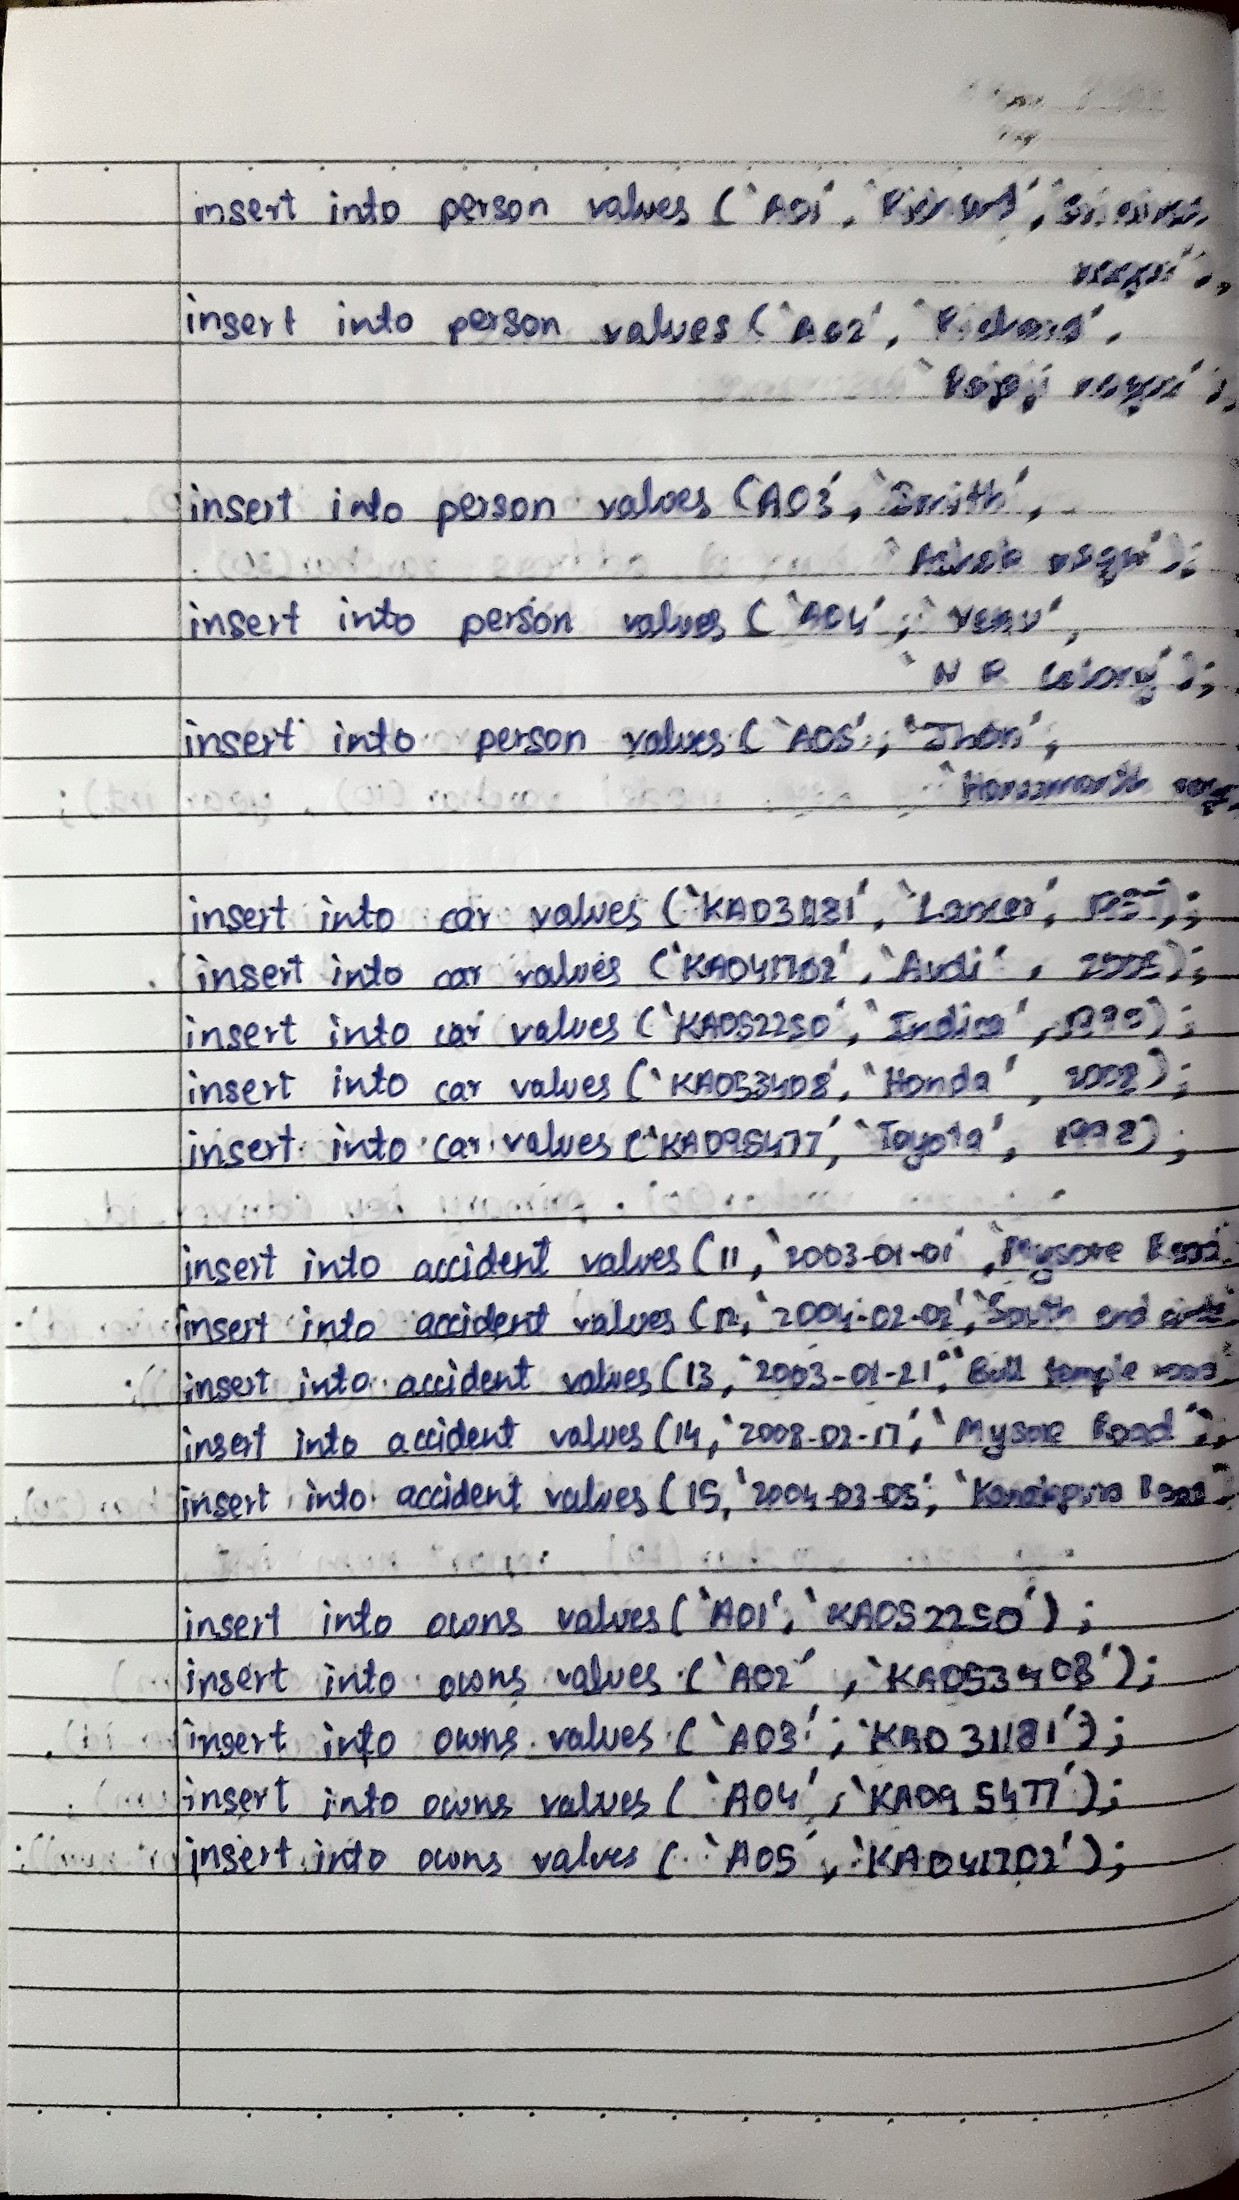 insert into person values (`A01', `Richard', `Srinivas
nagar');
insert into person values (`A02', `
`Rajaji nagar');
insert into person values (A03', `Smith',
`Ashok nagar');
insert into person values (`A04', `Venu',
`N R Colony');
insert into person values (`A05', `Jhon',
`Hanumanth nagar
insert into car values (`KA031181', `Lancer',
insert into car values (`KA041702', `Audi', 2005);
insert into car values (`KA052250', `Indica', 1999);
insert into car values (`KA053408', `Honda', 2008);
insert into car values (`KA095477', `Toyota', 1998);
insert into accident values (11, `2003-01-01', `Mysore Road
insert into accident values (12, `2004-02-02', `South end circle
insert into accident values (13, `2003-01-21', `Bull temple road
insert into accident values (14, `2008-02-17', `Mysore Road');
insert into accident values (15, `2004-03-05', `Kanakpura Road
insert into owns values (`A01', `KA052250');
insert into owns values (`A02', `KA053408');
insert into owns values (`A03', `KA031181');
insert into owns values (`A04', `KA095477');
insert into owns values (`A05', `KA041702');